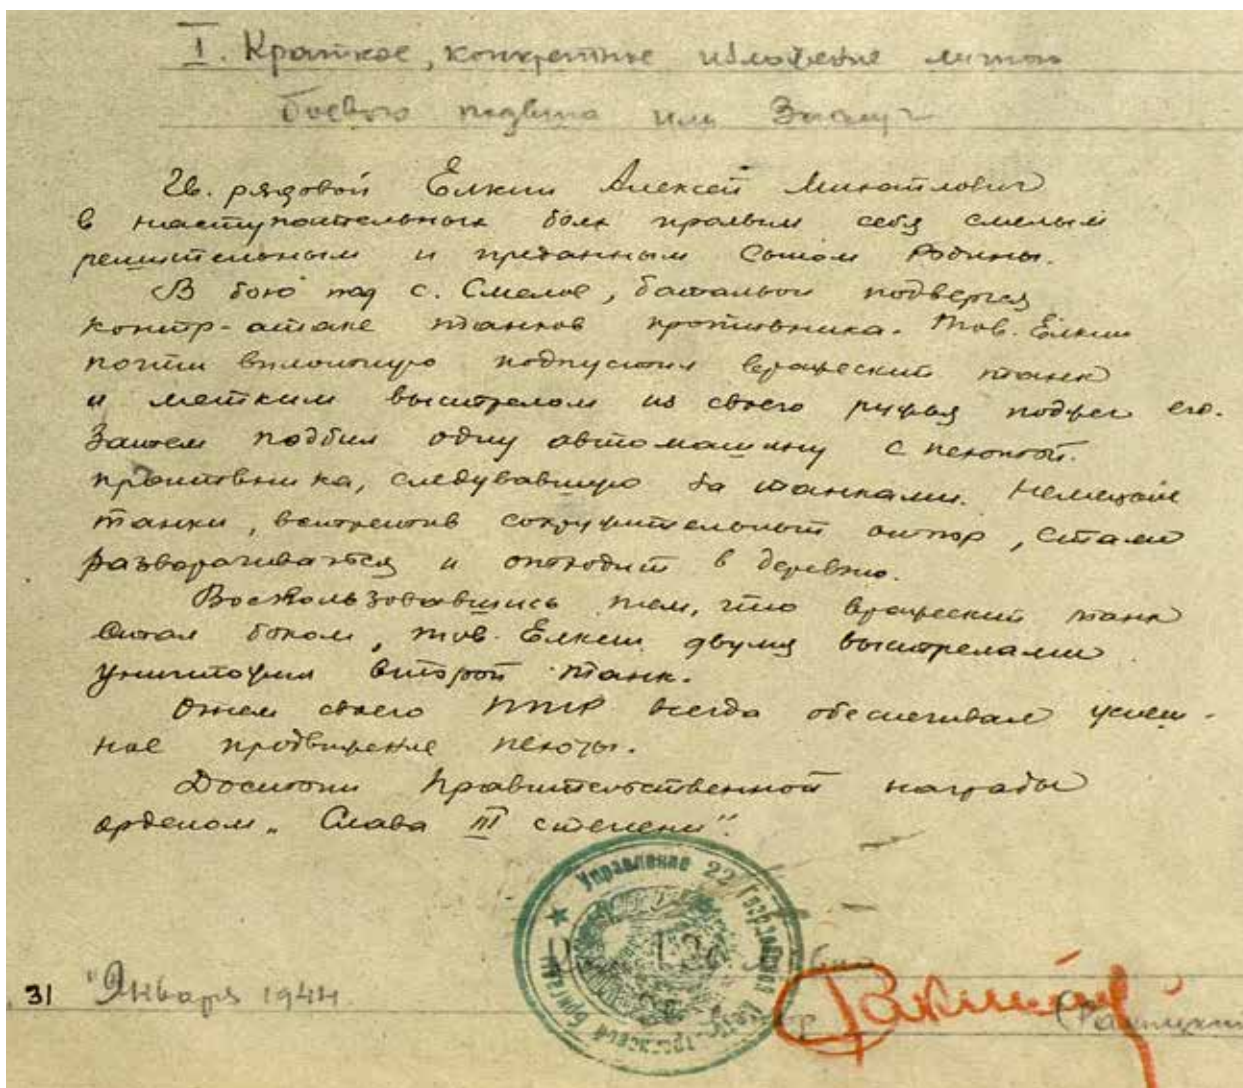 I. Краткое, конкретное изложение личного
боевого подвига или Заслуг
Гв. рядовой Ёлкин Алексей Михайлович
в наступательных боях проявил себя смелым
решительным и преданным Сыном Родины.
В бою под с. Смелое, батальон подвергся
контр-атаке танков противника. Тов. Ёлкин
почти вплотную подпустил вражеский танк
и метким выстрелом из своего ружья поджег его.
Затем подбил одну автомашину с пехотой.
противника, следувавшую за танками. Немецкие
танки, встретив сокрушительный отпор, стали
разворачиваться и отходить в деревню.
Воспользовавшись тем, что вражеский танк
встал боком, тов. Ёлкин двумя выстрелами
уничтожил второй танк.
Огнем своего ПТР всегда обеспечивал успеш-
ное продвижение пехоты.
Достоин Правительственной награды
орденом „Слава III степени".
Управление 22 Гвардейская
Бригады
31 "Января 1944